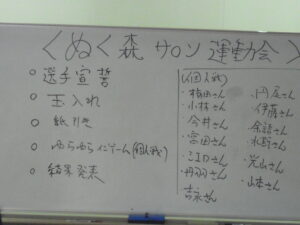 ＜ぬく森サロン運動会＞
○ 選手宣誓
○ 玉入れ
○ 紙引き
○ ゆらゆらゲーム(個人戦)
○ 結果発表
(個人戦)
・植田さん
・小林さん
・今井さん
・宮田さん
・江口さん
・丹羽さん
吉永さん
・伊藤さん
・余語さん
・水野さん
・光山さん
・山本さん